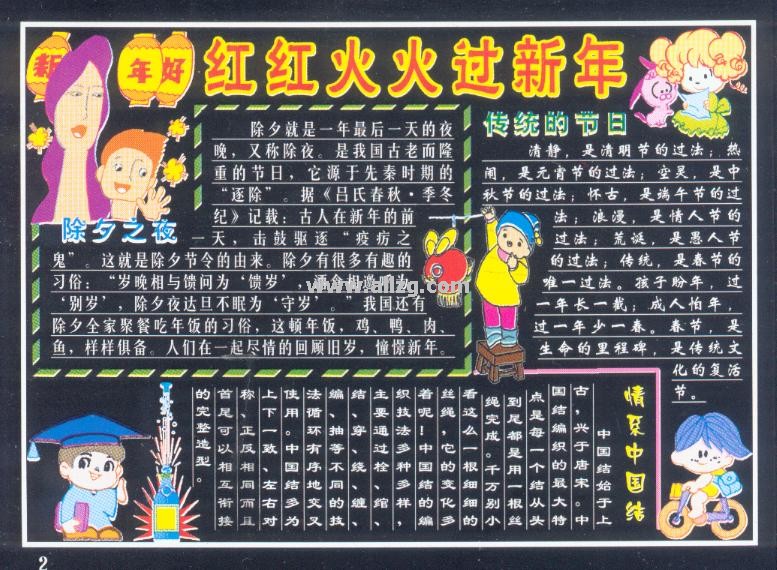 新年好
红红火火过新年
除夕之夜
除夕就是一年最后一天的夜
晚，又称除夜。是我国古老而隆
重的节日，它源于先秦时期的
“逐除”。据《吕氏春秋·季冬
纪》记载：古人在新年的前
一天，击鼓驱逐“疫疠之
鬼”。这就是除夕节令的由来。除夕有很多有趣的
习俗：“岁晚相与馈问为‘馈岁’，酒食相邀呼为
‘别岁’，除夕夜达旦不眠为‘守岁’。”我国还有
除夕全家聚餐吃年饭的习俗，这顿年饭，鸡、鸭、肉、
鱼，样样俱备。人们在一起尽情的回顾旧岁，憧憬新年。
传统的节日
清静，是清明节的过法；热
闹，是元宵节的过法；空灵，是中
秋节的过法；怀古，是端午节的过
法；浪漫，是情人节的
过法；荒诞，是愚人节
的过法；传统，是春节的
唯一过法。孩子盼年，过
一年长一截；成人怕年，
过一年少一春。春节，是
生命的里程碑，是传统文
化的复活
节。
情系中国结
中国结始于上
古，兴于唐宋。中
国结编织的最大特
点是每一个结从头
到尾都是用一根丝
绳完成。千万别小
看这么一根细细的
丝绳，它的变化多
着呢！中国结的编
织技法多种多样，
主要通过栓、绾、
结、穿、绕、缠、
编、抽等不同的技
法循环有序地交叉
使用。中国结多为
上下一致、左右对
称、正反相同而且
首尾可以相互衔接
的完整造型。
www.allzg.com
2